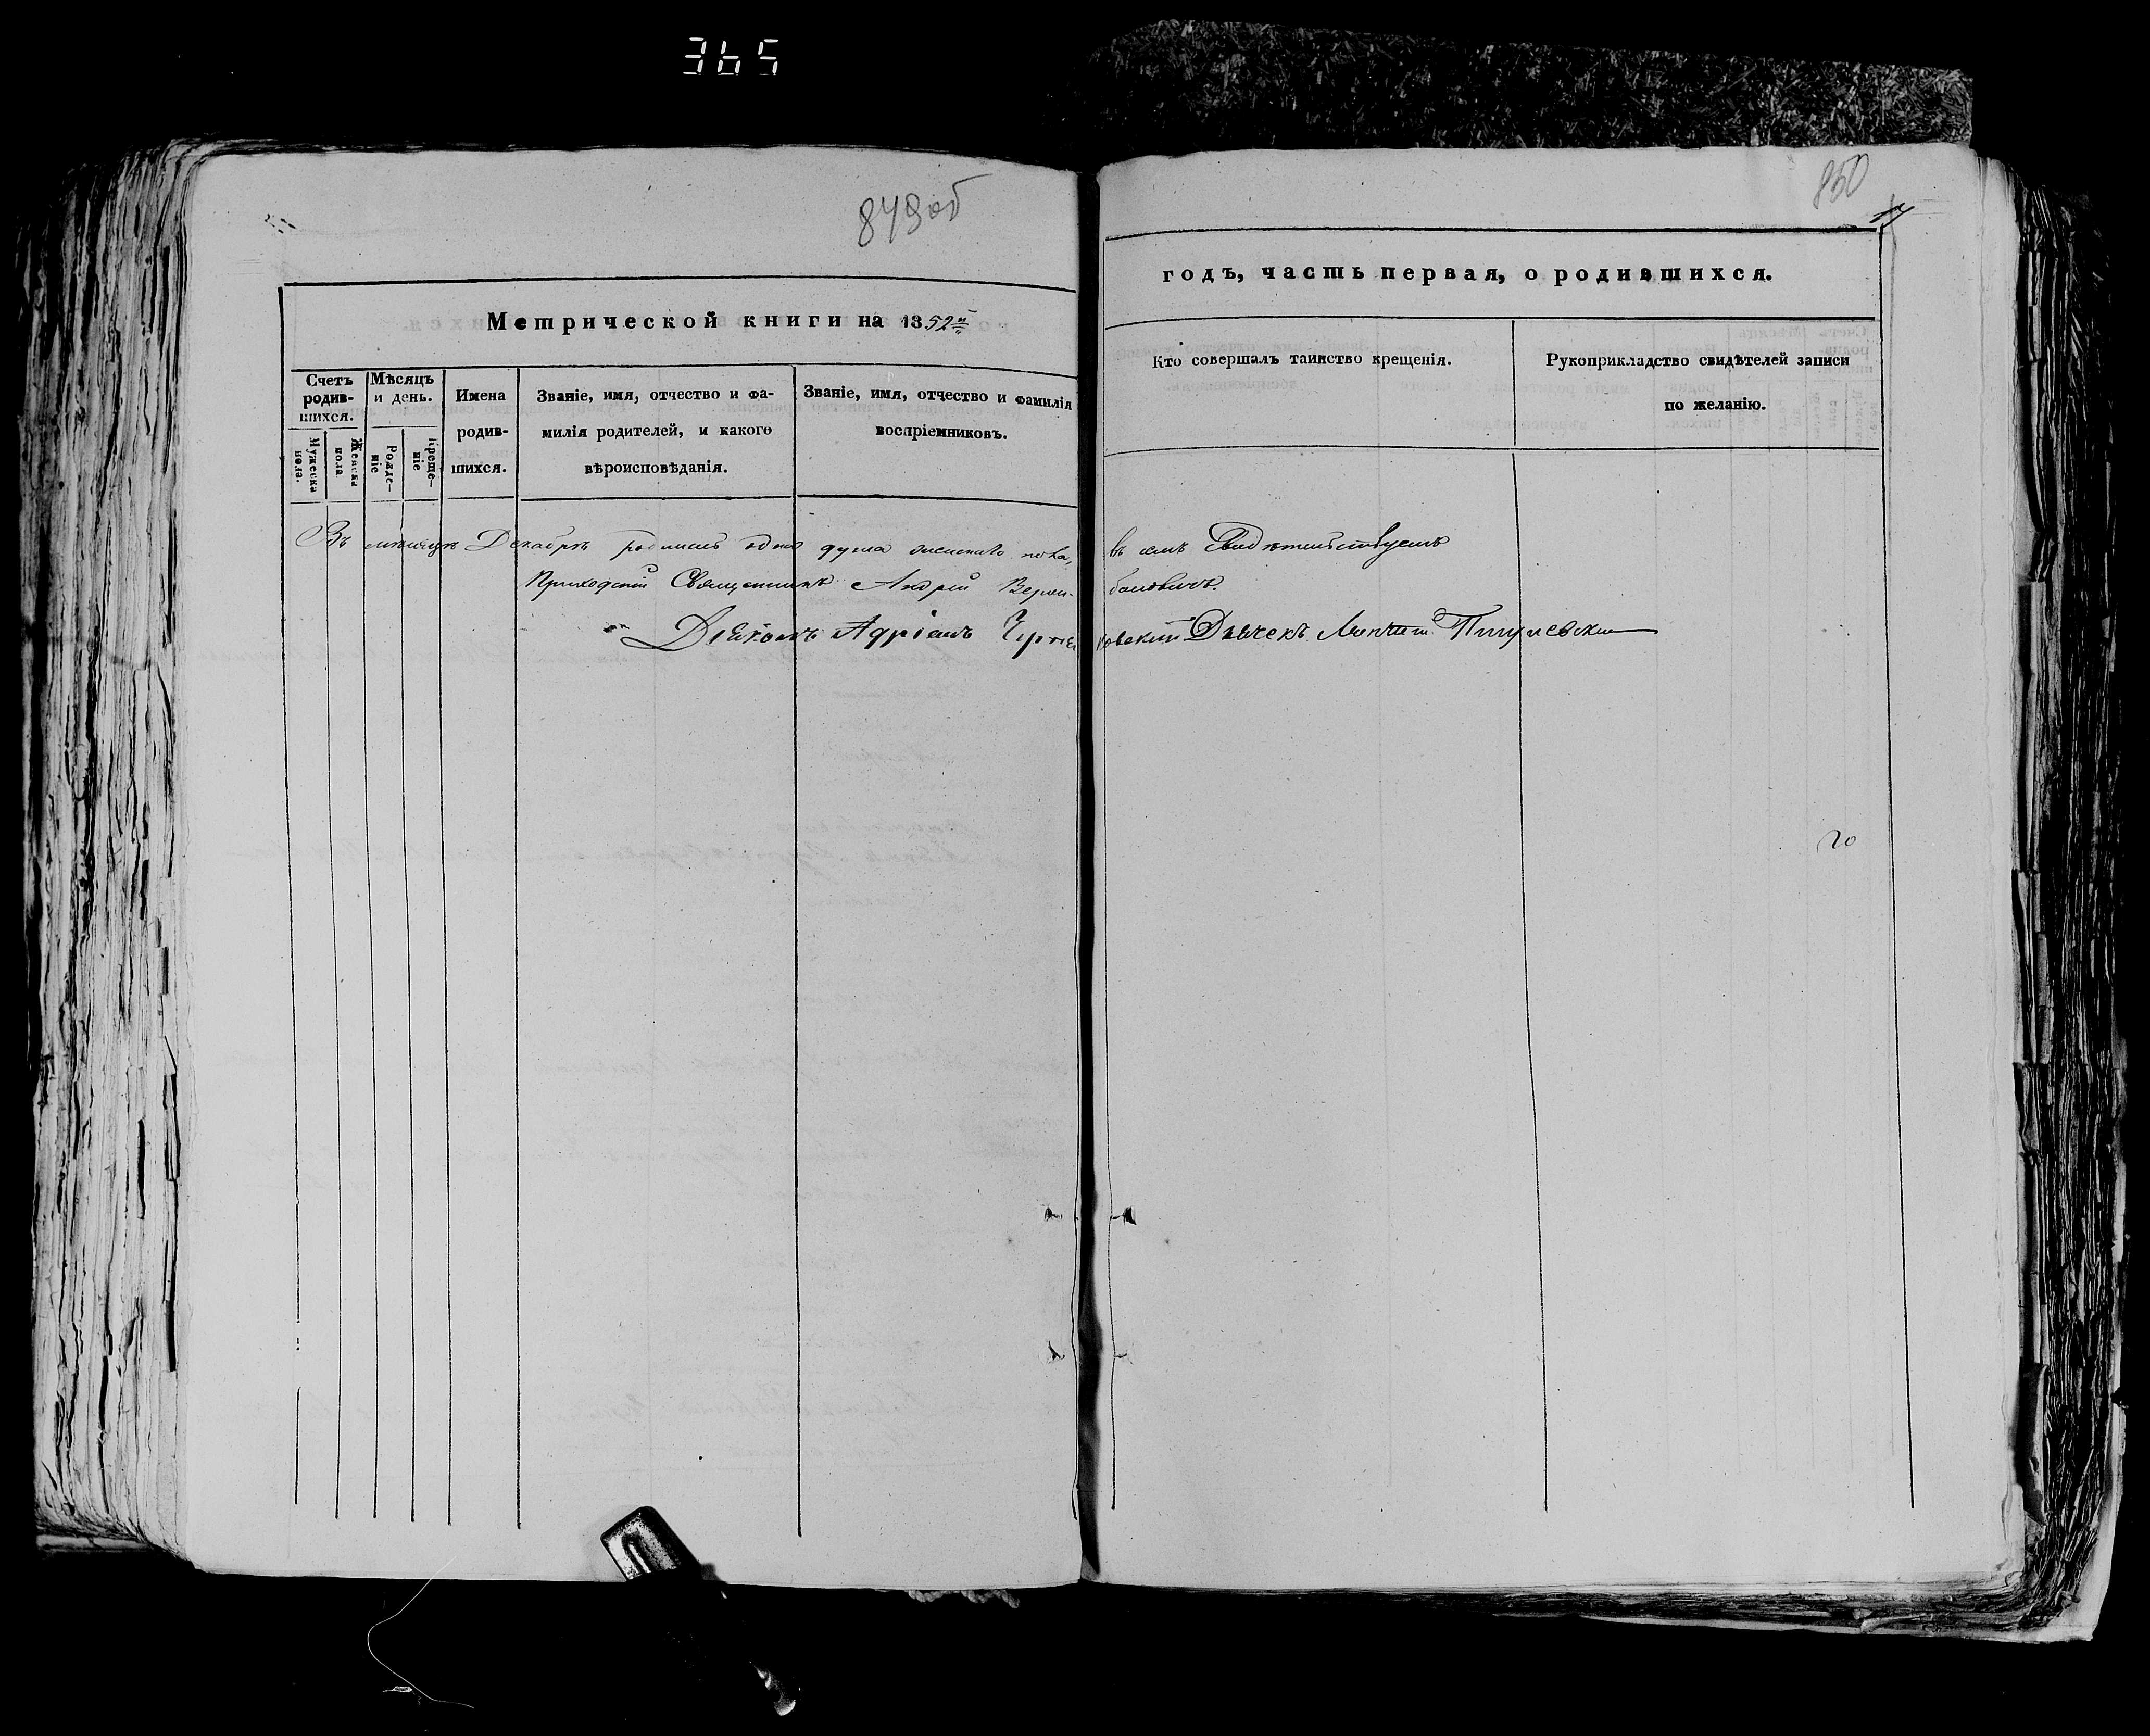 365
849об
850
Метрической книги на 1852й
годъ, часть первая, о родившихся.
Счетъ родив-шихся.
Мужеска пола.
Женска пола.
Мѣсяцъ и день.
Рожде-ніе
Креще-ніе
Имена
родив-
шихся.
Званіе, имя, отчество и фа-
милія родителей, и какого
вѣроисповѣданія.
Званіе, имя, отчество и фамилія
воспріемниковъ.
Кто совершалъ таинство крещенія.
Рукоприкладство свидѣтелей записи
по желанію.
Въ мѣсяцѣ Декабрѣ родилась одна душа женскаго пола, въ чемъ Свидѣтельствуемъ
Приходскій Священникъ Андрей
Діаконъ Адріанъ Дьячекъ